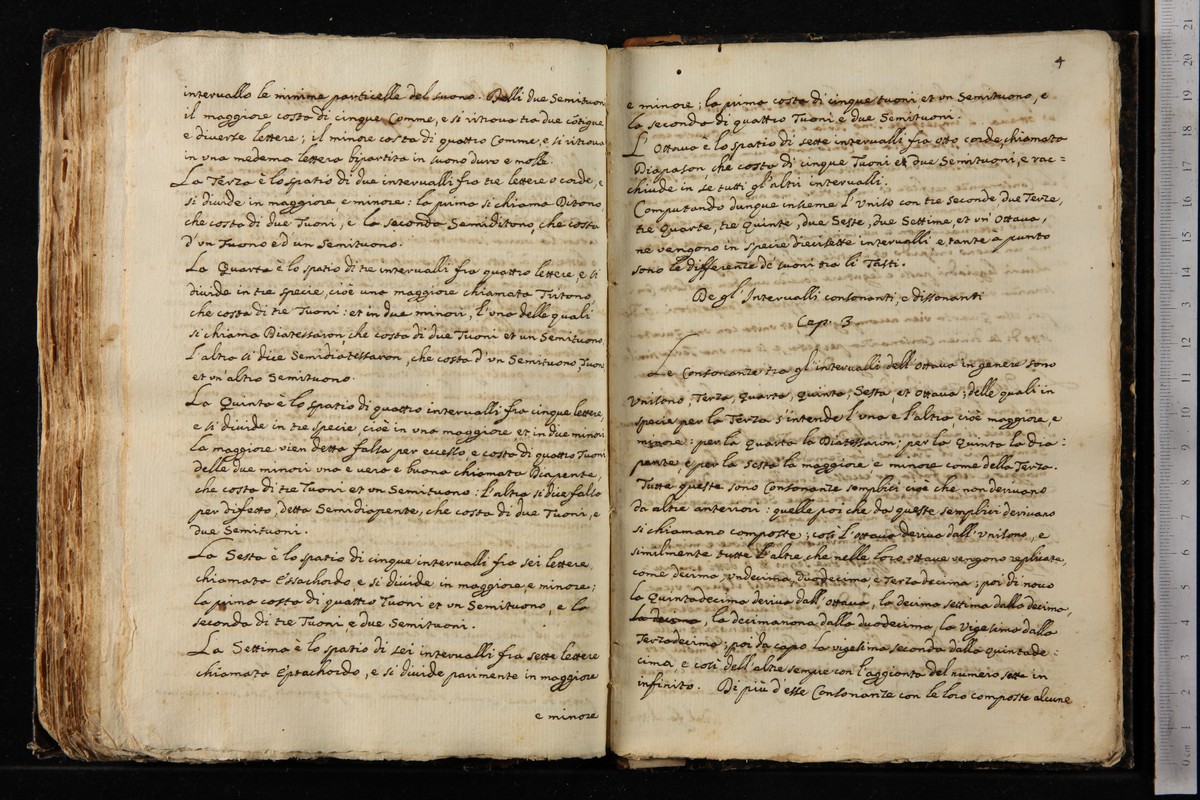 intervallo le minime particelle del suono. Delli due Semituoni
il maggiore costa di cinque Comme, e si ritroua tra due cotigue
e diuerse lettere; il minore costa di quattro Comme, e si ritroua
in una medema lettera bipartita in suono duro e molle.
La Terza è lo spatio di due interualli fra tre lettere o corde, e
si diuide in maggiore e minore: la prima si chiama Ditono,
che costa di due Tuoni, e la seconda Semiditono, che costa
d'un Tuono ed un Semituono.
La Quarta è lo spatio di tre interualli fra quattro lettere, e si
diuide in tre specie, cioè una maggiore chiamata Tritono,
che costa di tre Tuoni: et in due minori, l'una delle quali
si chiama Diatessaron, che costa di due Tuoni et un Semituono.
L'altra si dice Semidiatessaron, che costa d'un Semituono, Tuono
et un'altro Semituono.
La Quinta è lo spatio di quattro interualli fra cinque lettere,
e si diuide in tre specie, cioè in una maggiore, et in due minori
La maggiore vien detta falsa per eccesso e costa di quattro Tuoni
delle due minori una è vera e buona chiamata Diapente,
che costa di tre Tuoni et un Semituono: l'altra si dice falsa
per difetto, detta Semidiapente, che costa di due Tuoni, e
due Semituoni.
La Sesta è lo spatio di cinque interualli fra sei lettere
chiamata Essachordo e si diuide in maggiore, e minore;
la prima costa di quattro Tuoni et un Semituono, e la
seconda di tre Tuoni, e due Semituoni.
La Settima è lo spatio di sei interualli fra sette lettere
chiamata Eptachordo, e si diuide parimente in maggiore
e minore
4
e minore; la prima costa di cinque tuoni et un Semituono, e
la seconda di quattro Tuoni e due Semituoni.
L'Ottaua è lo spatio di sette interualli fra otto corde, chiamata
Diapason, che costa di cinque Tuoni et due Semituoni, e rac=
chiude in se tutti gl'altri interualli.
Computando dunque insieme l'Uniso con tre seconde due Terze,
tre Quarte, tre Quinte, due Seste, due Settime, et un'Ottaua,
ne vengono in specie diecisette interualli e tante à punto
sono le differenze de suoni tra li Tasti.
De gl'Interualli consonanti, e dissonanti
Cap. 3
Le Consonanze tra gl'interualli dell'ottaua in genere sono
Unisono, Terza, Quarta, Quinta, Sesta et Ottaua; delle quali in
specie per la Terza s'intende l'una e l'altra, cioè maggiore, e
minore: per la Quarta la Diatessaron; per la Quinta la Dia:
pente e per la Sesta la maggiore e minore come della Terza.
Tutte queste sono Consonanze semplici cioè che non deriuano
da altre anteriori: quelle poi che da queste semplici deriuano
si chiamano composte; così l'ottaua deriua dall'Unisono, e
similmente tutte l'altre, che nelle loro ottaue vengono replicate,
come decima, undecima, duodecima, e Terzadecima; poi di nouo
la Quintadecima deriua dall'ottaua, la decima settima dalla decima,
la decima, la decimanona dalla duodecima, la vigesima dalla
Terzadecima; poi da capo la vigesima seconda dalla quintade:
cima, e così dell'altre sempre con l'aggionta del numero sette in
infinito. Di più d'esse Consonanze con le loro composte alcune